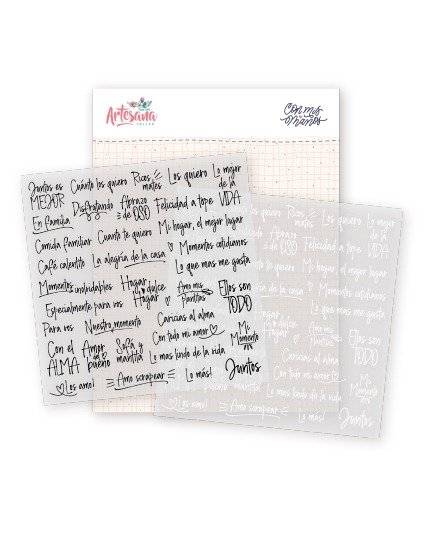 Artesana
TALLER
Con mis
manos
Juntos es
MEJOR
Cuánto los quiero
Ricos
mates
Los quiero
Lo mejor
de la
VIDA
En familia
Disfrutando
Abrazo
de OSO
Felicidad a tope
Comida familiar
Cuanto te quiero
Mi hogar, el mejor lugar
Café calentito
La alegria de la casa
Momentos cotidianos
Lo que mas me gusta
Momentos inolvidables
Hogar
dulce
Hogar
Amo mis
plantitas
Ellos son
TODO
Especialmente para vos
Para vos
Nuestro momento
Caricias al alma
Con todo mi amor
Mi
Momento
Con el
ALMA
Amor
bueno
Sofá y
mantita
Lo mas lindo de la vida
Los amo!
Amo scrapear
Lo más!
Juntos
Los quiero
Lo mejor
de la
VIDA
de OSO
Felicidad a tope
Mi hogar, el mejor lugar
Momentos cotidianos
Lo que mas me gusta
dulce
Amo mis
plantitas
Ellos son
TODO
Caricias al alma
Con todo mi amor
Mi
Momento
Lo mas lindo de la vida
Amo scrapear
Lo más!
Juntos